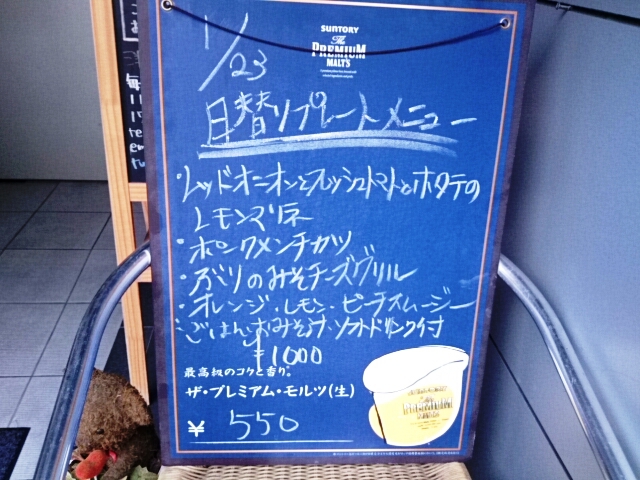 1/23
SUNTORY
The
PREMIUM
MALT'S
日替リプレートメニュー
・レッドオニオンとフレッシュトマトとホタテの
レモンマリネ
・ポークメンチカツ
・ぶりのみそチーズグリル
・オレンジ・レモン・ピーチスムージー
ごはん・おみそ汁・ソフトドリンク付
¥1000
最高級のコクと香り。
ザ・プレミアム・モルツ(生)
¥ 550